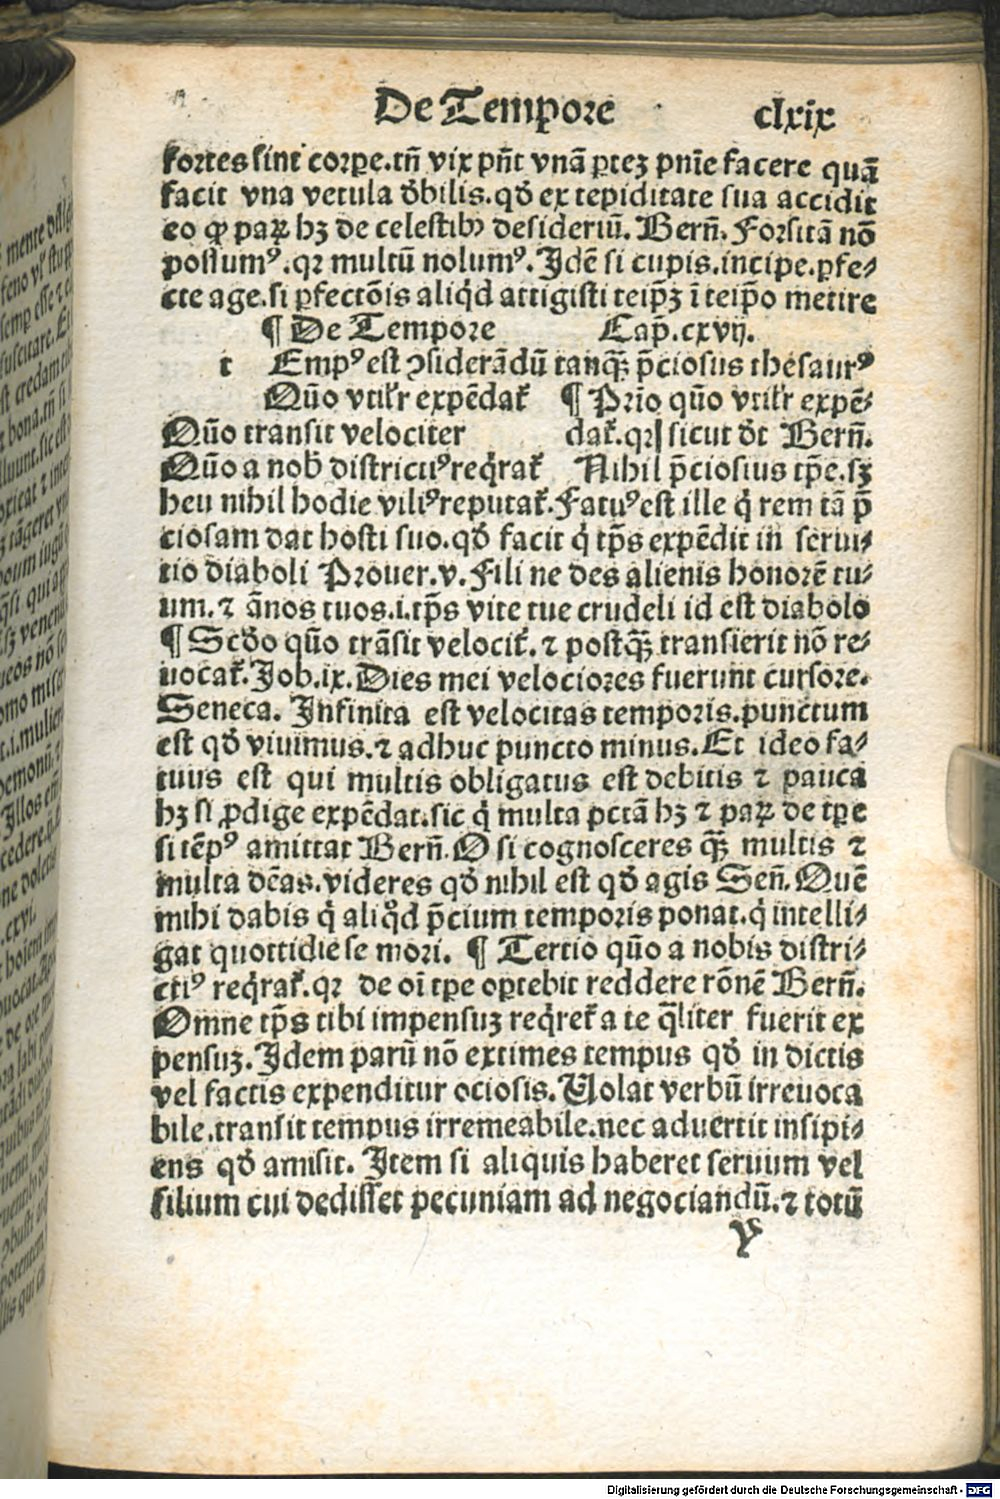 De Tempore clxix
fortes sint corꝑe.tñ vix pñt vnã ꝑteȝ pnĩe facere quã
facit vna vetula ðbilis.qð ex tepiditate sua accidit
eo ꝙ paꝝ hȝ de celestibꝰ desideriũ. Berñ. Forsitã nõ
possumꝰ.qꝛ multũ nolumꝰ.Idẽ si cupis.incipe.ꝑfe⸗
cte age.si ꝑfectõis aliqd attigisti teip̃ȝ ĩ teip̃o metire
¶ De Tempore Cap.cxvij.
t Empꝰ est ꝯsiderãdũ tanq̃ȝ p̃ciosus thesaurꝰ
Quõ vtilr̃ expẽdat̃ ¶ Prio quõ vtilr̃ expẽ⸗
Quõ transit velociter dat̃.qꝛ sicut ðt Berñ.
Quõ a nob̃ districtiꝰreqrat̃ Nihil p̃ciosius tp̃e.sȝ
heu nihil hodie viliꝰreputat̃.Fatuꝰest ille q̇ rem tã p̃
ciosam dat hosti suo.qð facit q̇ tp̃s expẽdit in serui⸗
tio diaboli Prouer.v.Fili ne des alienis honorẽ tu⸗
um.⁊ ãnos tuos.i.tp̃s vite tue crudeli id est diabolo
¶ Scðo quõ trãsit velocit̃.⁊ postq̃ȝ transierit nõ re⸗
uocat̃.Job.ix.Dies mei velociores fuerunt cursore.
Seneca. Infinita est velocitas temporis.punctum
est qð viuimus.⁊ adhuc puncto minus.Et ideo fa⸗
tuus est qui multis obligatus est debitis ⁊ pauca
hȝ si ꝓdige expẽdat.sic q̇ multa pctã hȝ ⁊ paꝝ de tꝑe
si tẽpꝰ amittat Berñ.O si cognosceres q̃ȝ multis ⁊
multa dẽas.videres qð nihil est qð agis Señ.Quẽ
mihi dabis q̇ aliqd p̃cium temporis ponat.q̇ intelli⸗
gat quottidie se mori. ¶ Tertio quõ a nobis distri⸗
ctiꝰ reqrat̃.qꝛ de oĩ tꝑe oꝑtebit reddere rõnẽ Berñ.
Omne tp̃s tibi impensuȝ reqret̃ a te q̃liter fuerit ex
pensuȝ.Idem parũ nõ extimes tempus qð in dictis
vel factis expenditur ociosis.Uolat verbũ irreuoca
bile.transit tempus irremeabile.nec aduertit insipi⸗
ens qð amisit. Item si aliquis haberet seruum vel
filium cui dedisset pecuniam ad negociandũ.⁊ totũ
y
Digitalisierung gefördert durch die Deutsche Forschungsgemeinschaft - DFG